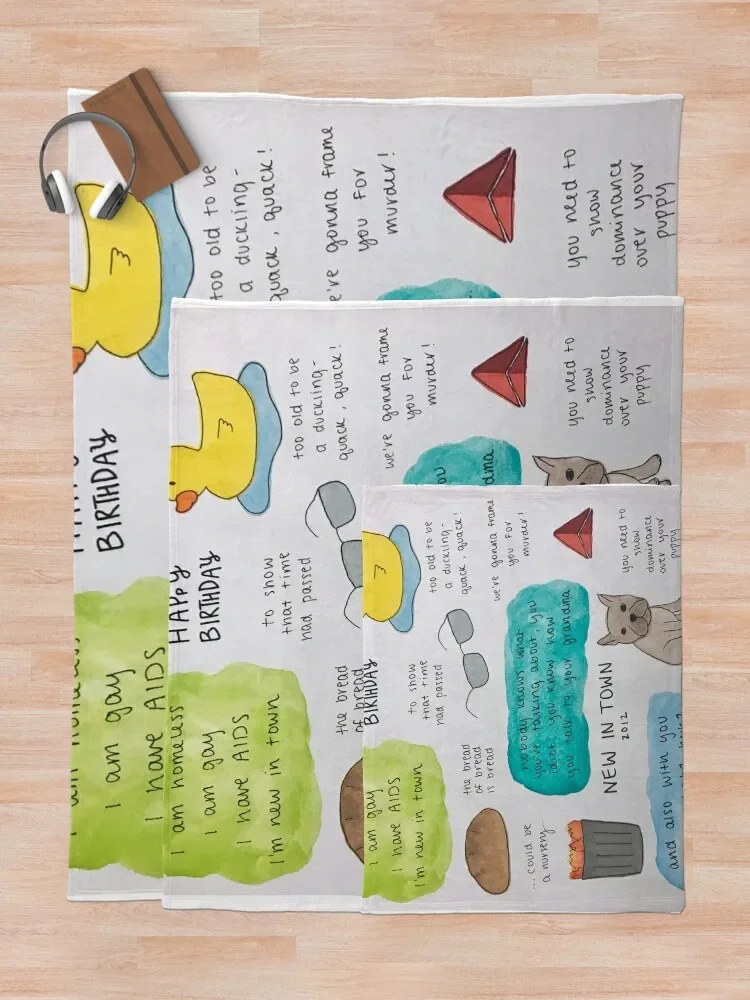 too old to be
a duckling-
quack, quack!
gonna frame
you for
murder!
you need to
show
dominance
over your
puppy
BIRTHDAY
I am gay
I have AIDS
too old to be
a duckling-
quack, quack!
we're gonna frame
you for
murder!
you need to
show
dominance
over your
puppy
HAPPY
BIRTHDAY
to show
that time
had passed
I am homeless
I am gay
I have AIDS
I'm new in town
the bread
of bread
too old to be
a duckling-
quack, quack!
we're gonna frame
you for
murder!
you need to
show
dominance
over your
puppy
BIRTHDAY
to show
that time
had passed
nobody knows what
you're talking about, you
idiot. you know, how
you talk to your grandma
I am gay
I have AIDS
I'm new in town
the bread
of bread
is bread
NEW IN TOWN
2012
...could be
a nursery...
and also with you